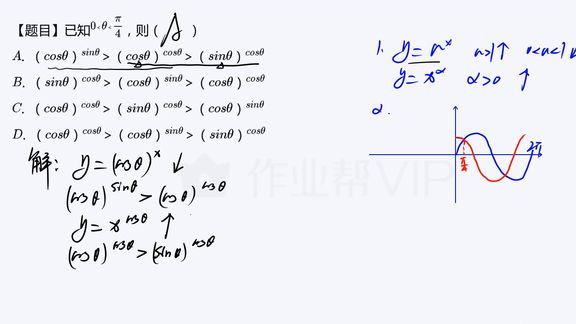 【题目】已知0<θ<π/4，则（ A ）
A. (cosθ)^sinθ > (cosθ)^cosθ > (sinθ)^cosθ
B. (sinθ)^cosθ > (cosθ)^cosθ > (cosθ)^sinθ
C. (cosθ)^cosθ > (sinθ)^cosθ > (cosθ)^sinθ
D. (cosθ)^cosθ > (cosθ)^sinθ > (sinθ)^cosθ
解: y=(cosθ)^x ↓
(cosθ)^sinθ > (cosθ)^cosθ
y=x^cosθ ↑
(cosθ)^cosθ > (sinθ)^cosθ
1. y=a^x a>1↑ 0<a<1↓
y=x^α α>0 ↑
2.
π/4
2π
作业帮VIP